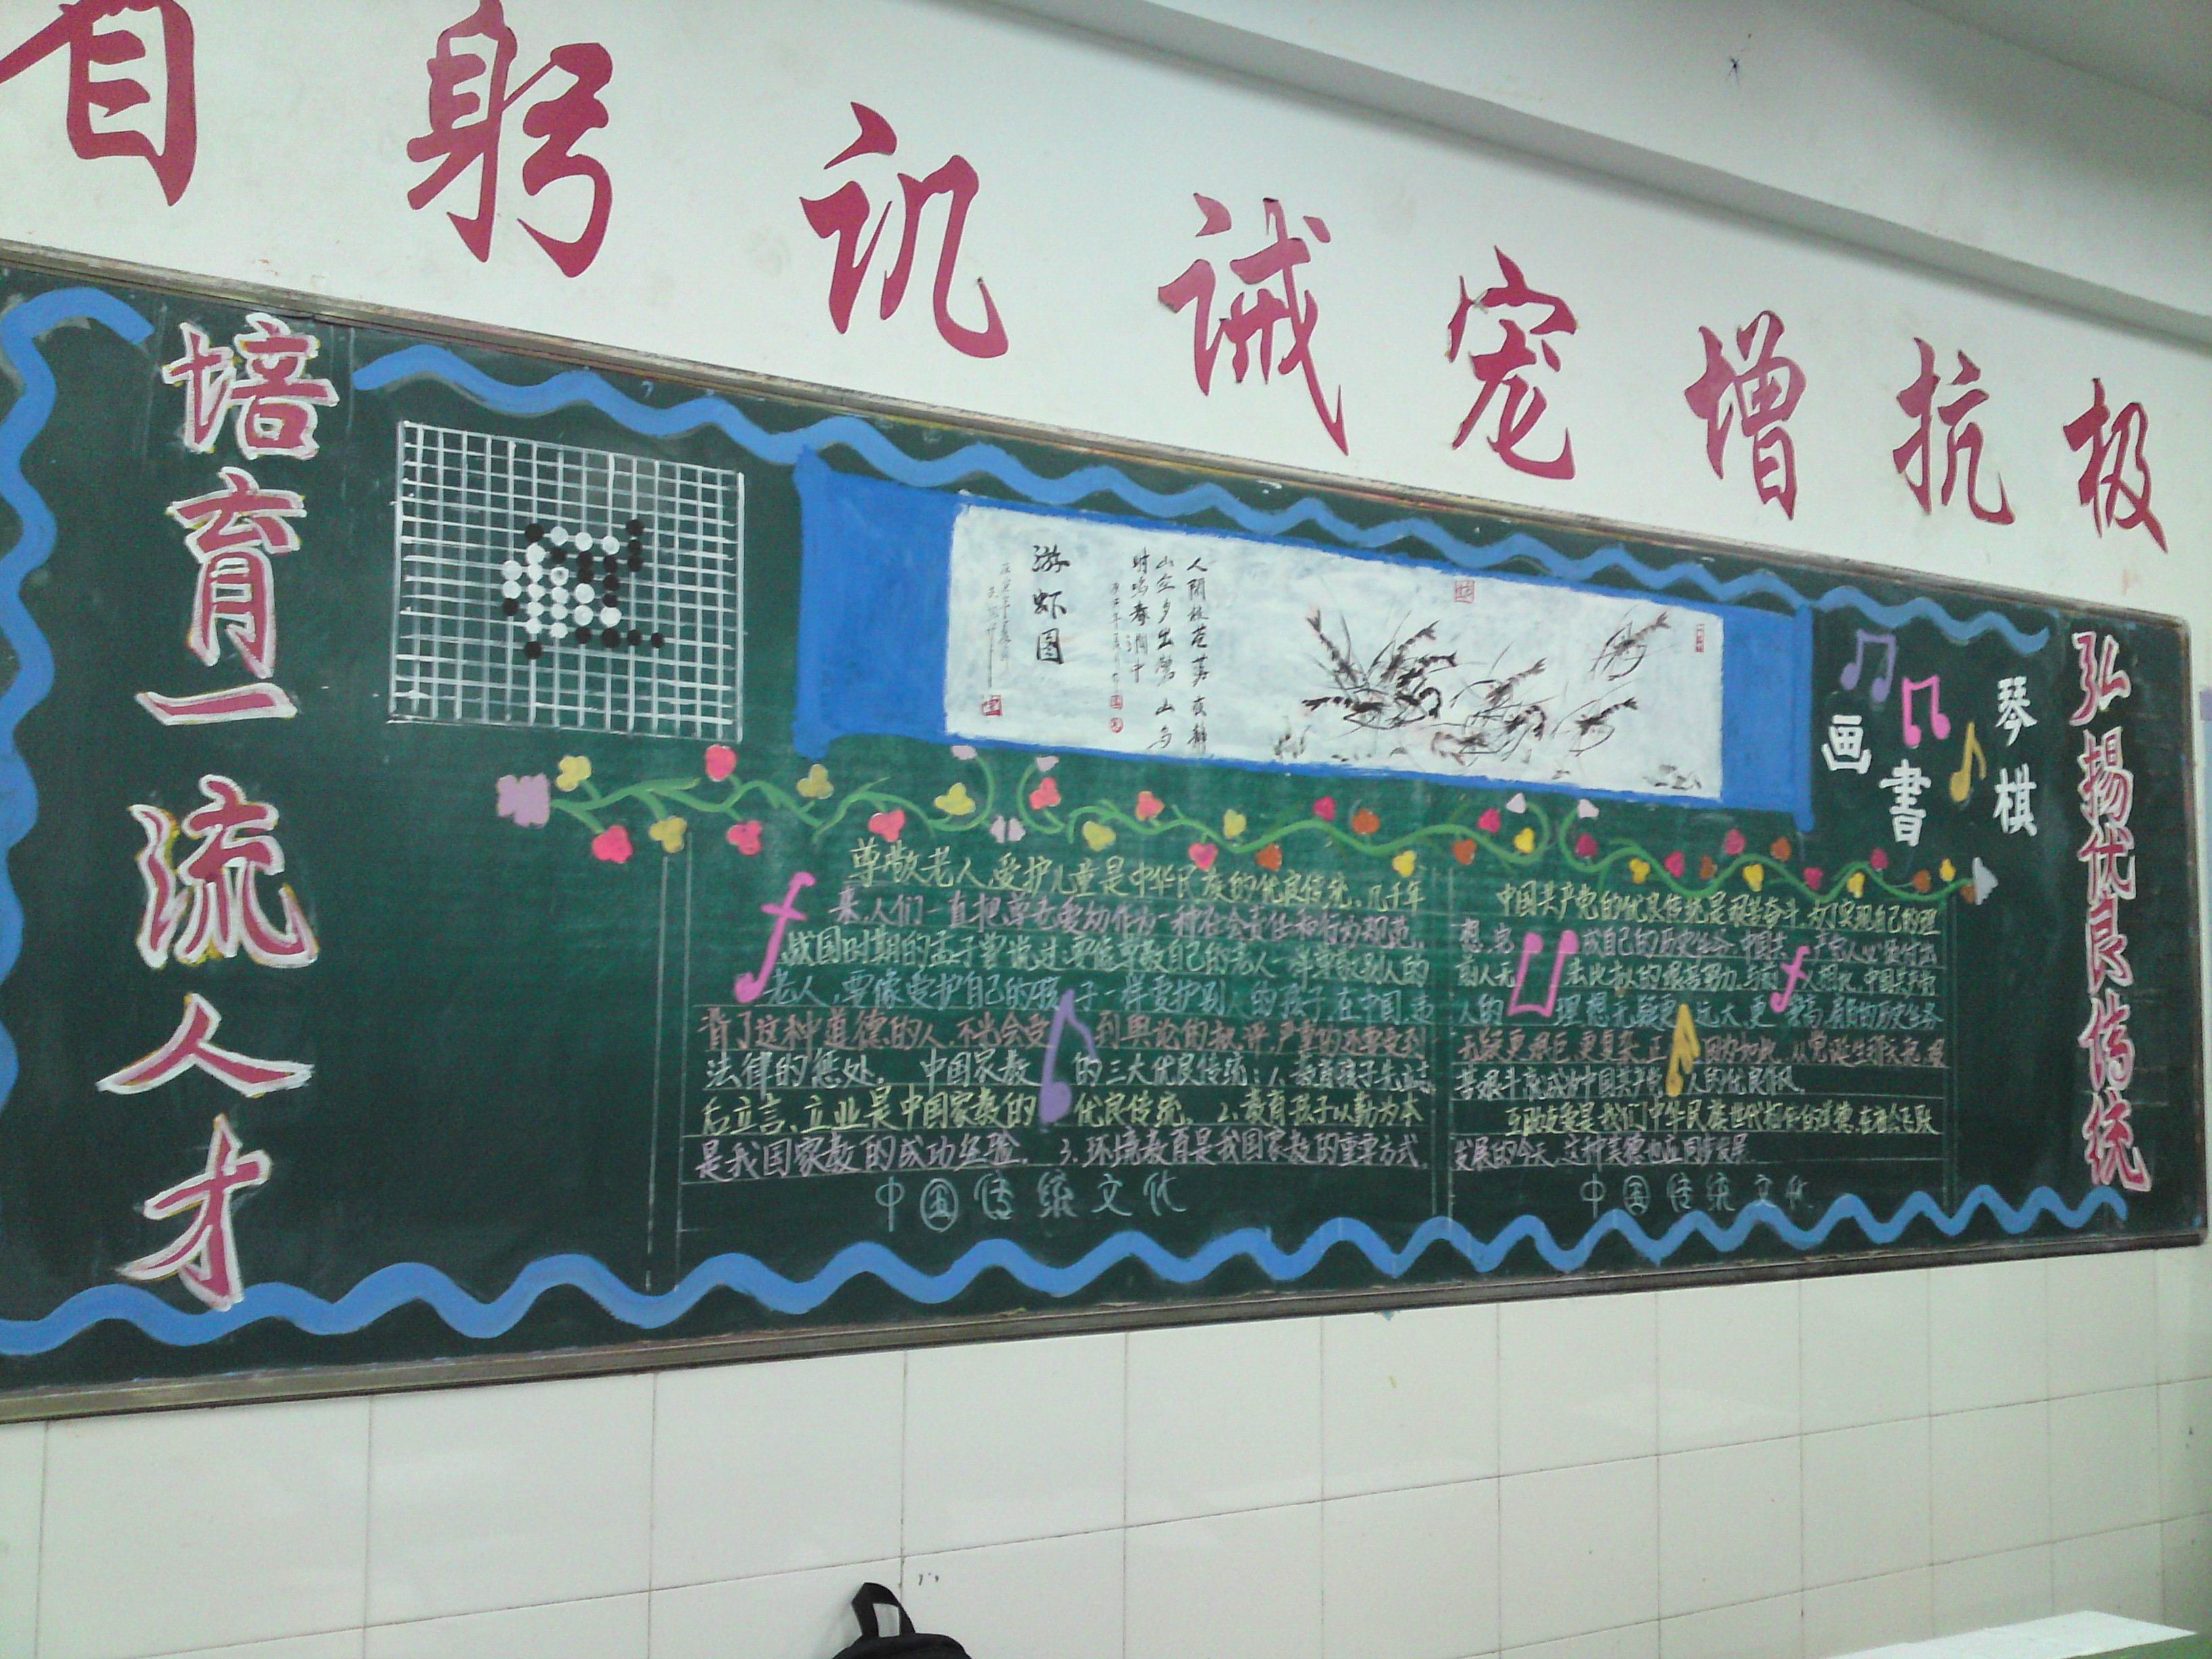 省躬讥诫宠增抗极
培育一流人才
弘揚优良传统
琴棋
書
画
游虾图
人閑桂花落夜静
山空月出驚山鸟
时鸣春涧中
尊敬老人,爱护儿童是中华民族的优良传统,几千年
来,人们一直把尊老爱幼作为一种社会责任和行为规范,
战国时期的孟子曾说过:要像尊敬自己的老人一样尊敬别人的
老人,要像爱护自己的孩子一样爱护别人的孩子,在中国,违
背了这种道德的人,不光会受到舆论的批评,严重的还要受到
法律的惩处。中国家教的三大优良传统:1、教育孩子先立志
后立言、立业是中国家教的优良传统。2.教育孩子以勤为本
是我国家教的成功经验。3.环境教育是我国家教的重要方式。
中国传统文化
中国共产党的优良传统是艰苦奋斗,为了实现自己的理
想,完成自己的历史任务,中国共产党人必须付出
前人无法比拟的艰苦努力,与前人相比,中国共产党
人的理想无疑更远大,更崇高,肩负的历史任务
无疑更艰巨,更复杂,正因为如此,从党诞生那天起,艰
苦奋斗就成为中国共产党人的优良作风。
互助友爱是我们中华民族世代相传的美德,在社会飞跃
发展的今天,这种美德也在同步发展。
中国传统文化